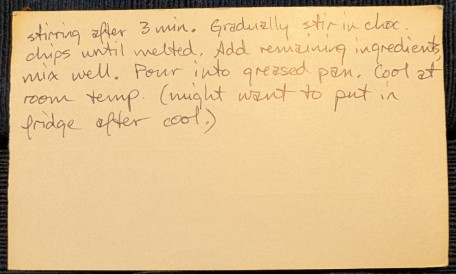 stirring after 3 min. Gradually stir in choc.
chips until melted. Add remaining ingredients,
mix well. Pour into greased pan. Cool at
room temp. (might want to put in
fridge after cool.)